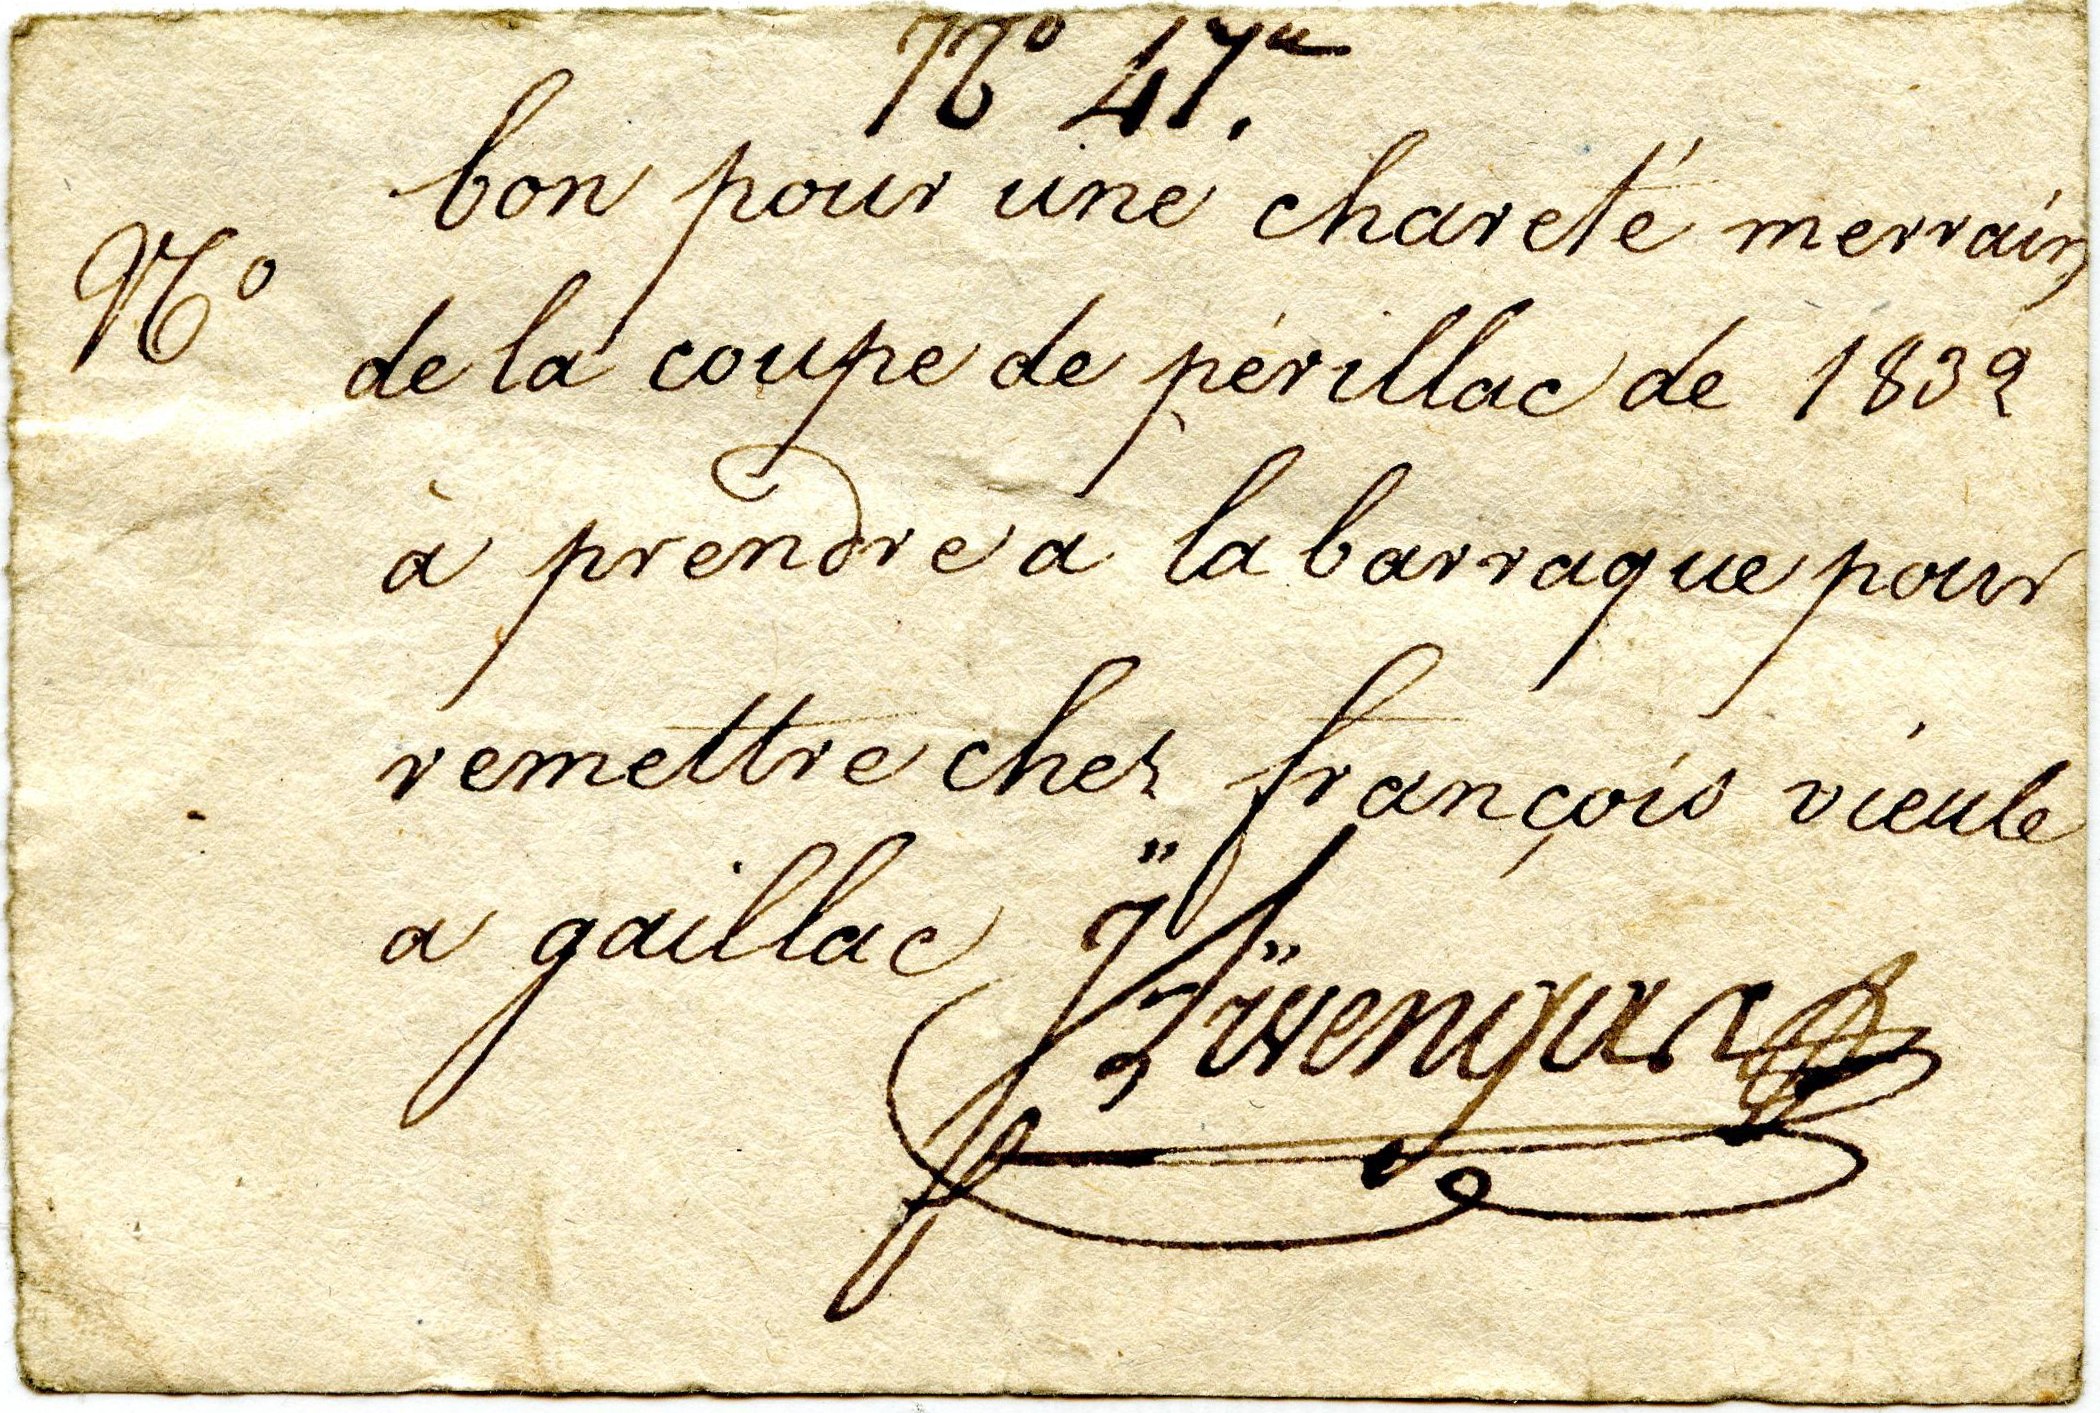 N° 47.
bon pour une chareté merrain
N°
de la coupe de périllac de 1832
à prendre a la barraque pour
remettre chez françois vieule
a gaillac